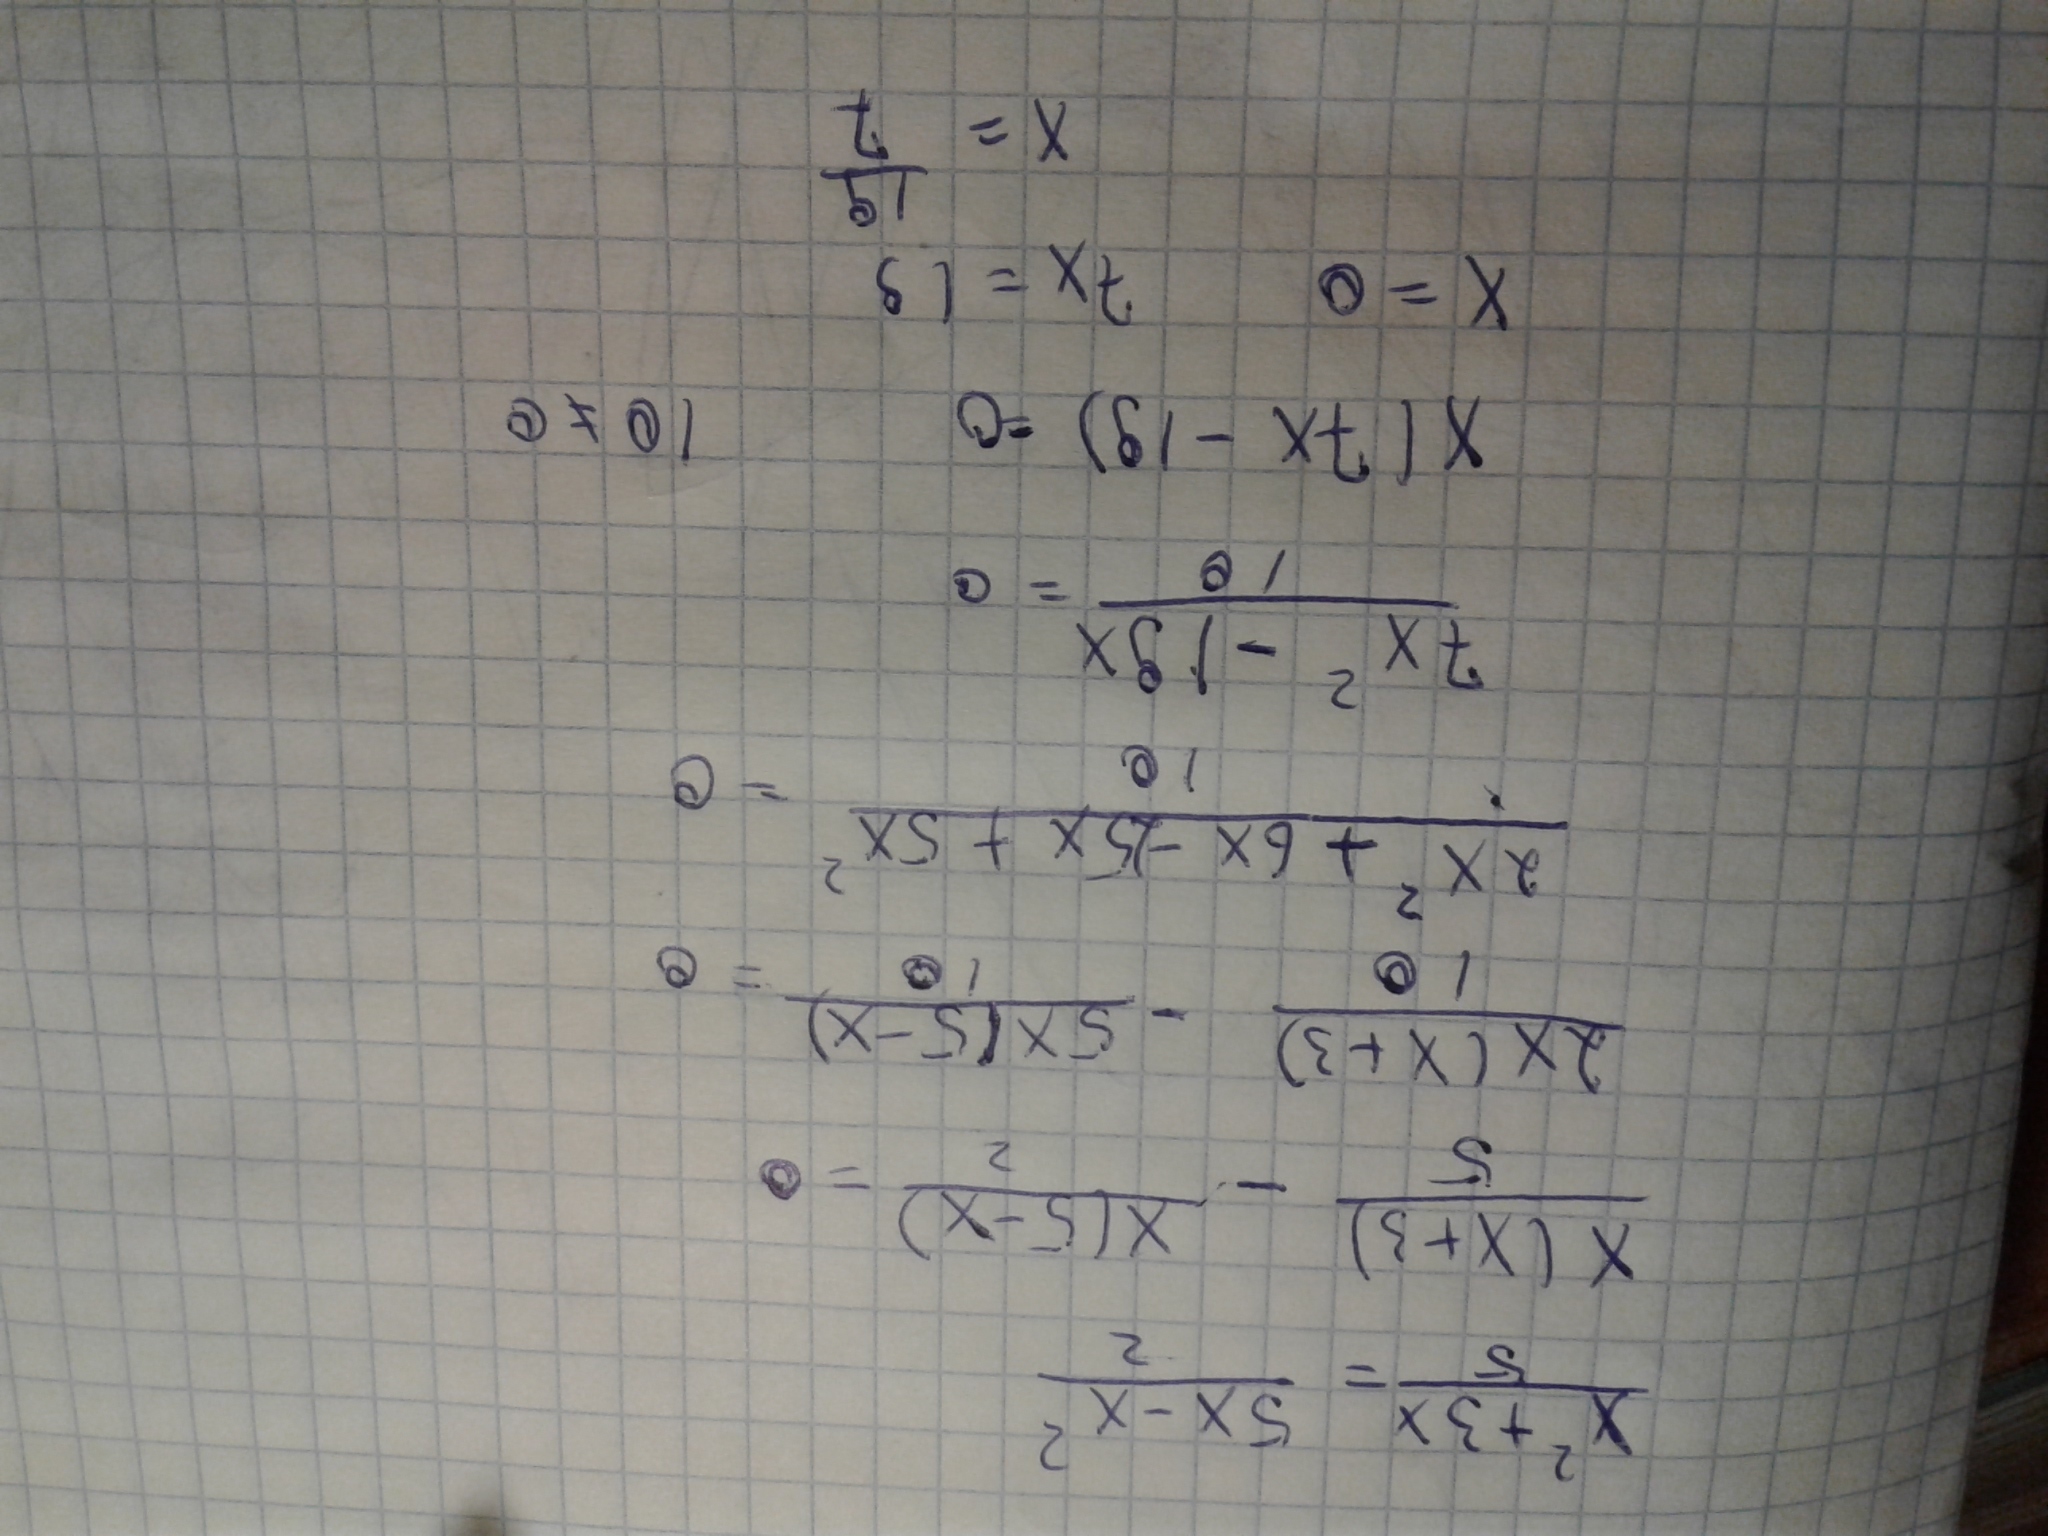 x²+3x/5 = 5x-x²/2
x(x+3)/5 - x(5-x)/2 = 0
2x(x+3)/10 - 5x(5-x)/10 = 0
2x² + 6x - 25x + 5x²/10 = 0
7x² - 19x/10 = 0
x(7x - 19) = 0 10 ≠ 0
x = 0 7x = 19
x = 19/7